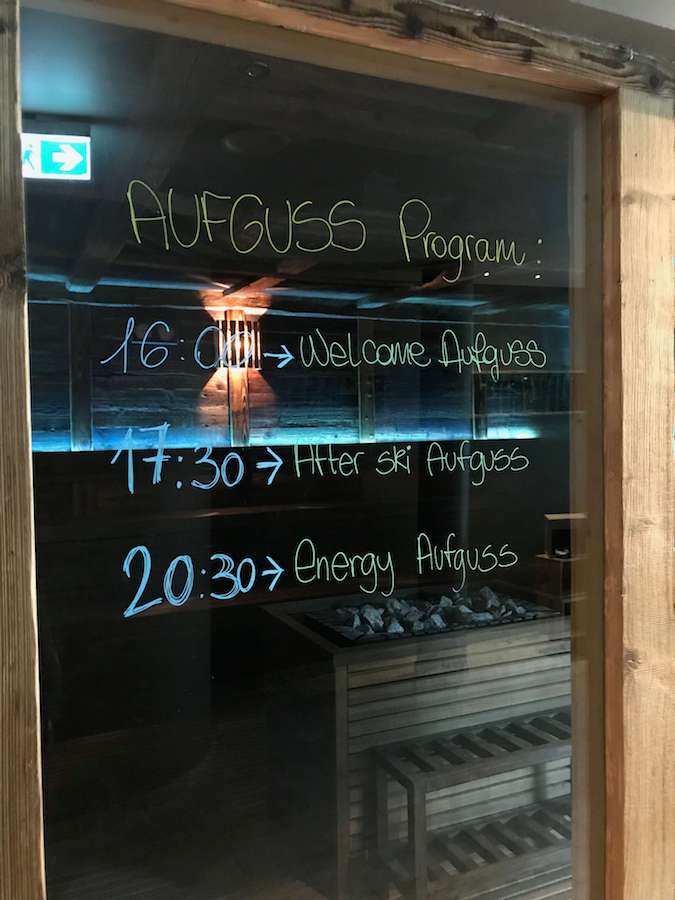 AUFGUSS Program:
16:00 → Welcome Aufguss
17:30 → After ski Aufguss
20:30 → energy Aufguss